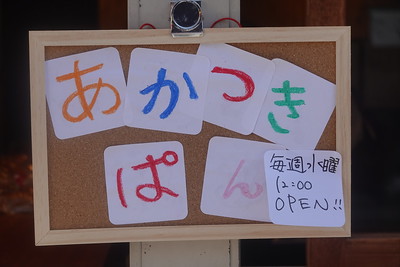 あかつき
ぱん
毎週水曜
12:00
OPEN!!